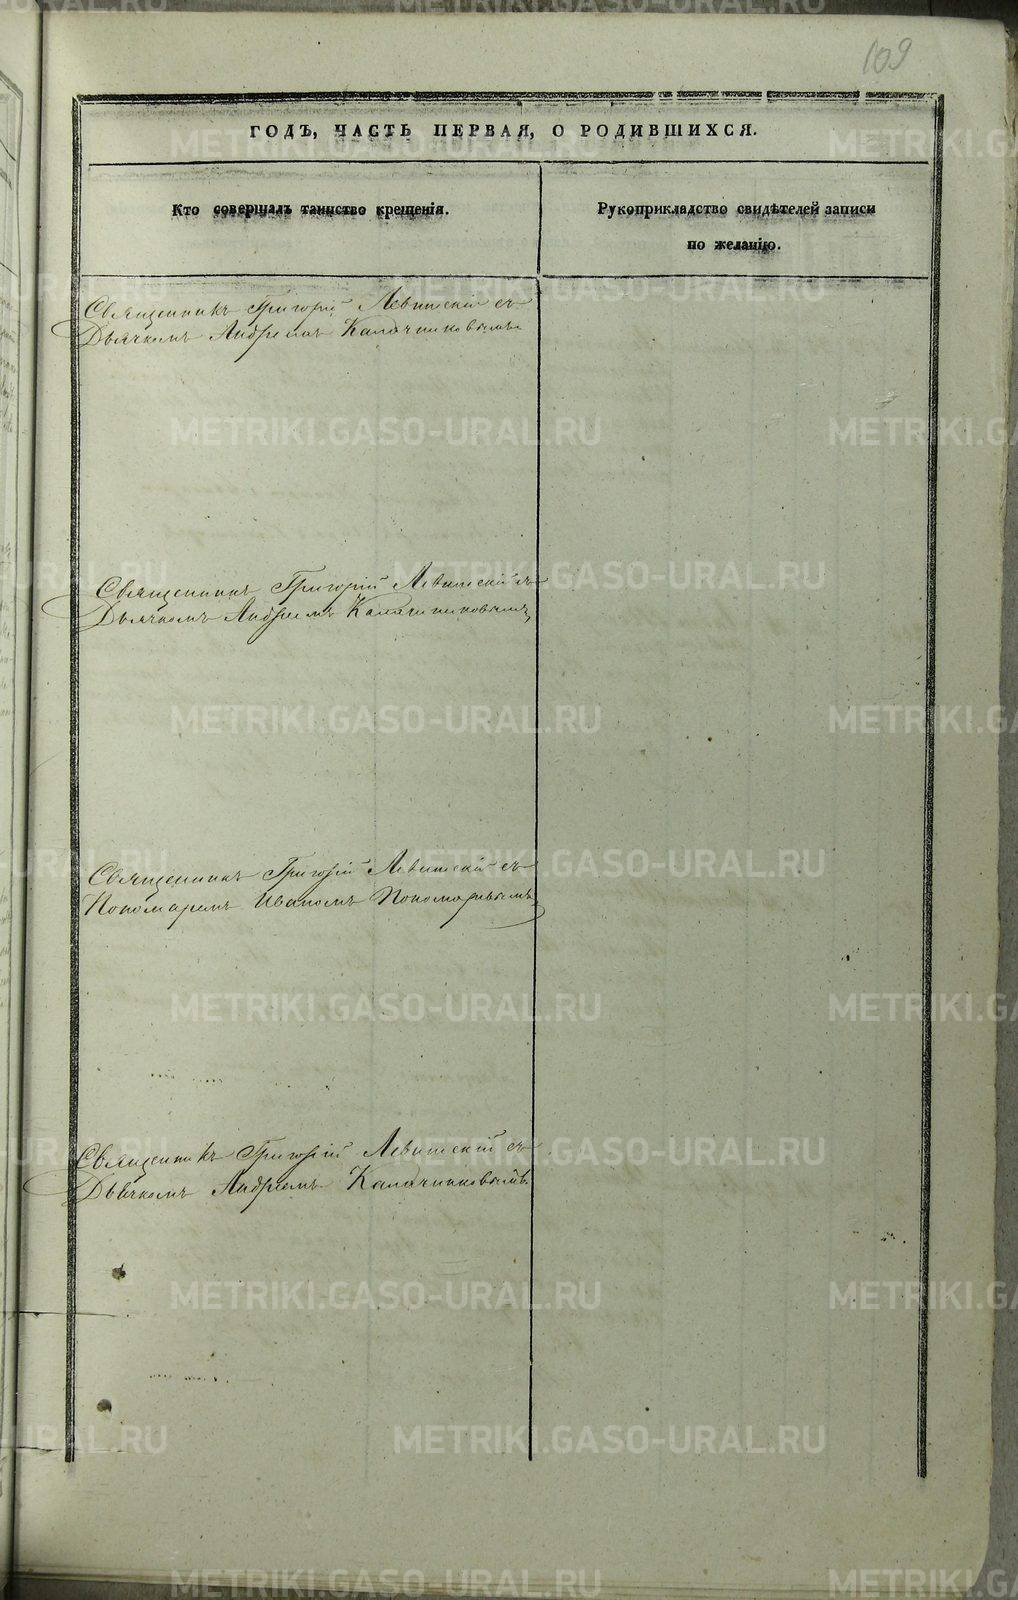 109
ГОДЪ, ЧАСТЬ ПЕРВАЯ, О РОДИВШИХСЯ.
Кто совершалъ таинство крещенія.
Рукоприкладство свидѣтелей записи
по желанію.
Священникъ Григорій Левитскій съ
Дьячкомъ Андреемъ Калачниковымъ
Священникъ Григорій Левитскій съ
Дьячкомъ Андреемъ Калачниковымъ
Священникъ Григорій Левитскій съ
Пономаремъ Иваномъ Пономаревымъ
Священникъ Григорій Левитскій съ
Дьячкомъ Андреемъ Калачниковымъ
METRIKI.GASO-URAL.RU